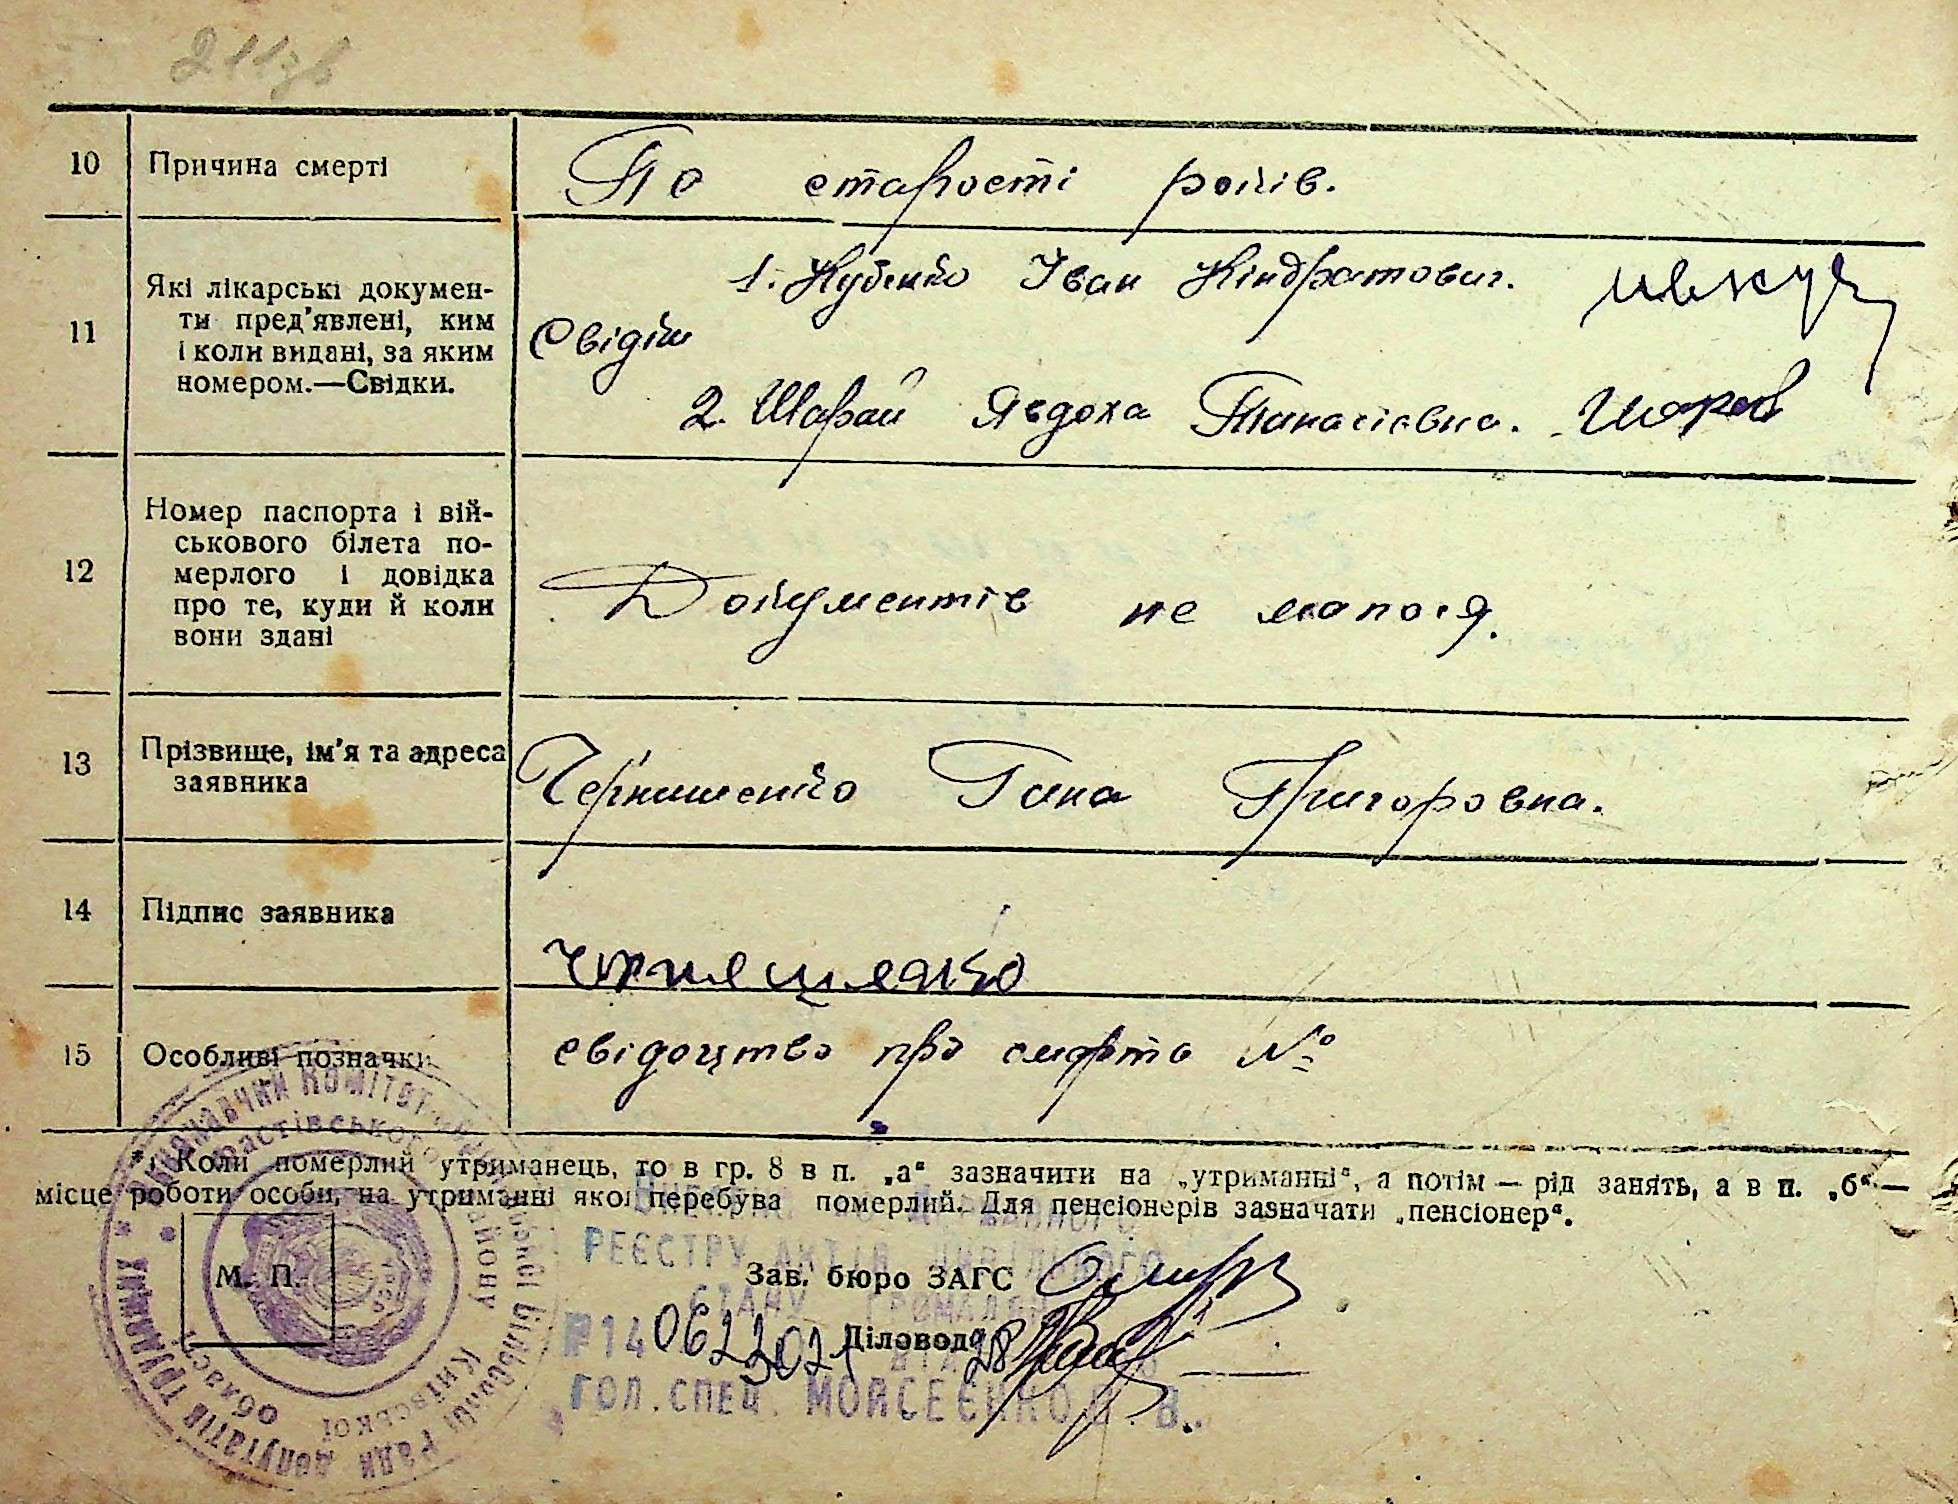 10 Причина смерті По старості років.
11 Які лікарські докумен-
ти пред'явлені, ким
і коли видані, за яким
номером.—Свідки.
Свідки
1. Іван Кіндратович.
2. Шарай Явдоха Панасієвна.
12 Номер паспорта і вій-
ськового білета по-
мерлого і довідка
про те, куди й коли
вони здані
Документів не малося.
13 Прізвище, ім'я та адреса
заявника
Чернишенко Гана Григоровна.
14 Підпис заявника
15 Особливі позначки свідоцтво про смерть №
*) Коли померлий утриманець, то в гр. 8 в п. „а“ зазначити на „утриманні“, а потім — рід занять, а в п. „б“ —
місце роботи особи, на утриманні якої перебува померлий. Для пенсіонерів зазначати „пенсіонер“.
державного
РЕЄСТРУ АКТІВ ЦИВІЛЬНОГО
М. П. Зав. бюро ЗАГС
СТАНУ ГРОМАДЯН
Діловод
ГОЛ.СПЕЦ. МОЙСЕЄНКО
ВИКОНАВЧИЙ КОМІТЕТ сільської Ради депутатів трудящих
Фастівського району Київської області
УРСР